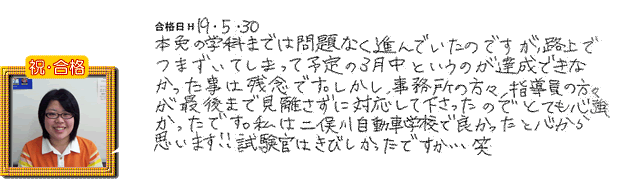 合格日 H 19・5・30
本免の学科までは問題なく進んでいたのですが、路上で
つまずいてしまって予定の3月中というのが達成できな
かった事は残念です。しかし、事務所の方々、指導員の方々
が最後まで見離さずに対応して下さったのでとても心強
かったです。私は二俣川自動車学校で良かったと心から
思います!!試験官はきびしかったですか…笑
祝・合格